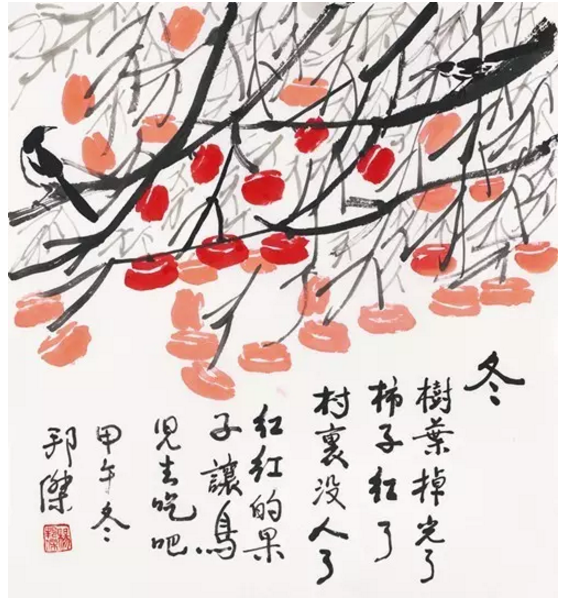 冬
樹葉掉光了
柿子紅了
村裏没人了
红红的果
子讓鳥
児去吃吧
甲午冬
邦傑